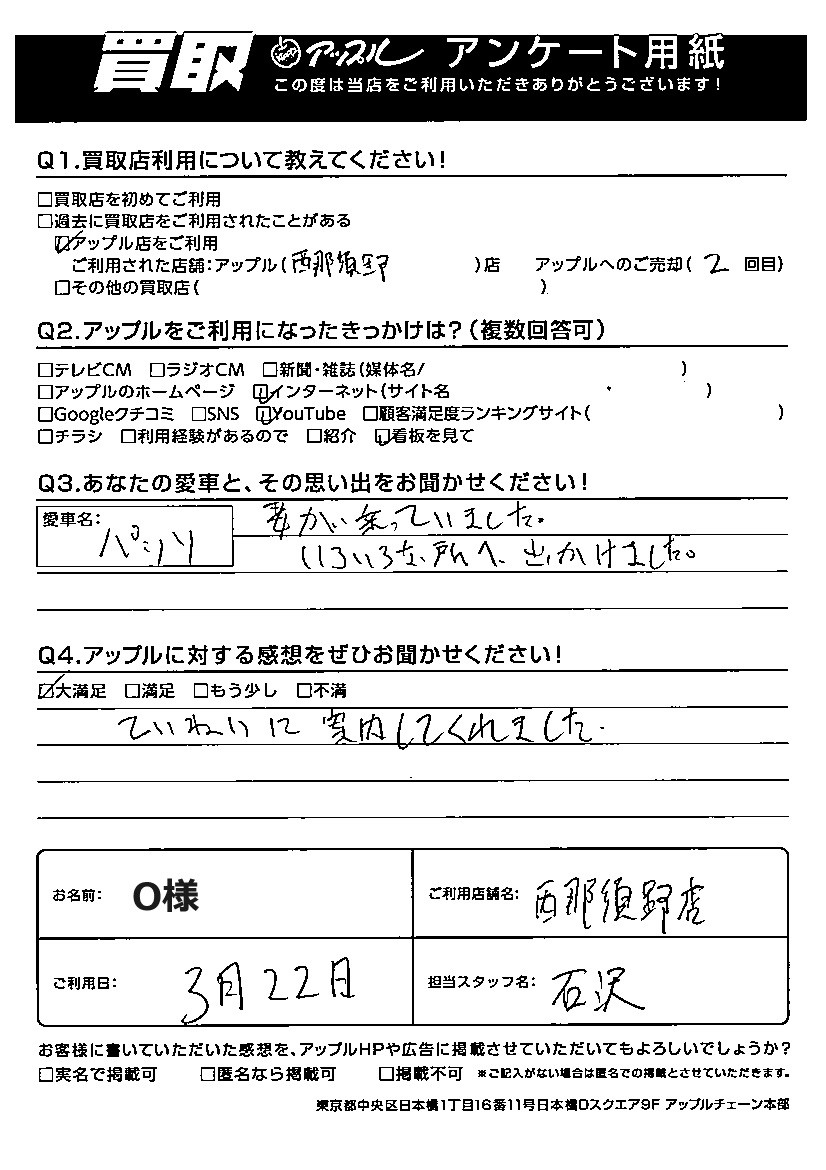 買取 アップル アンケート用紙
この度は当店をご利用いただきありがとうございます!
Q1.買取店利用について教えてください!
□買取店を初めてご利用
□過去に買取店をご利用されたことがある
☑アップル店をご利用
ご利用された店舗:アップル(西那須野)店 アップルへのご売却(2回目)
□その他の買取店( )
Q2.アップルをご利用になったきっかけは?(複数回答可)
□テレビCM □ラジオCM □新聞・雑誌(媒体名/ )
□アップルのホームページ ☑インターネット(サイト名 )
□Googleクチコミ □SNS ☑YouTube □顧客満足度ランキングサイト( )
□チラシ □利用経験があるので □紹介 ☑看板を見て
Q3.あなたの愛車と、その思い出をお聞かせください!
愛車名: パッソ 妻が乗っていました。
いろいろな所へ出かけました。
Q4.アップルに対する感想をぜひお聞かせください!
☑大満足 □満足 □もう少し □不満
ていねいに案内してくれました。
お名前: O様 ご利用店舗名: 西那須野店
ご利用日: 3月22日 担当スタッフ名: 石沢
お客様に書いていただいた感想を、アップルHPや広告に掲載させていただいてもよろしいでしょうか?
□実名で掲載可 □匿名なら掲載可 □掲載不可 ※ご記入がない場合は匿名での掲載とさせていただきます。
東京都中央区日本橋1丁目16番11号日本橋Dスクエア9F アップルチェーン本部